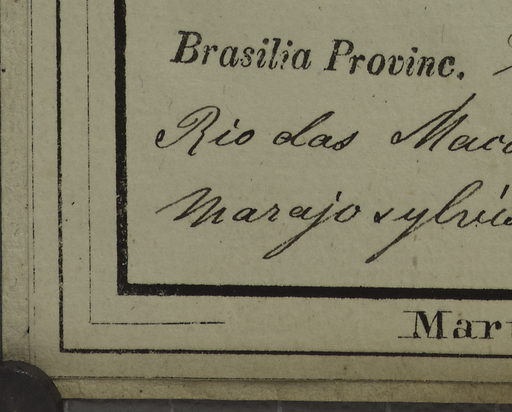 Brasilia Provinc.
Rio das
Marajo sylvis